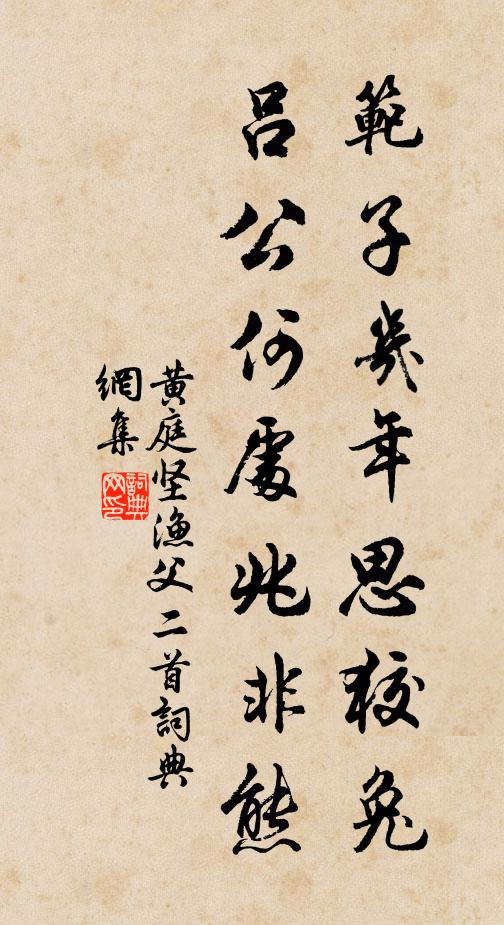 範子幾年思狡兔
吕公何處兆非熊
黄庭坚漁父二首詞典
網集
詞典
网印